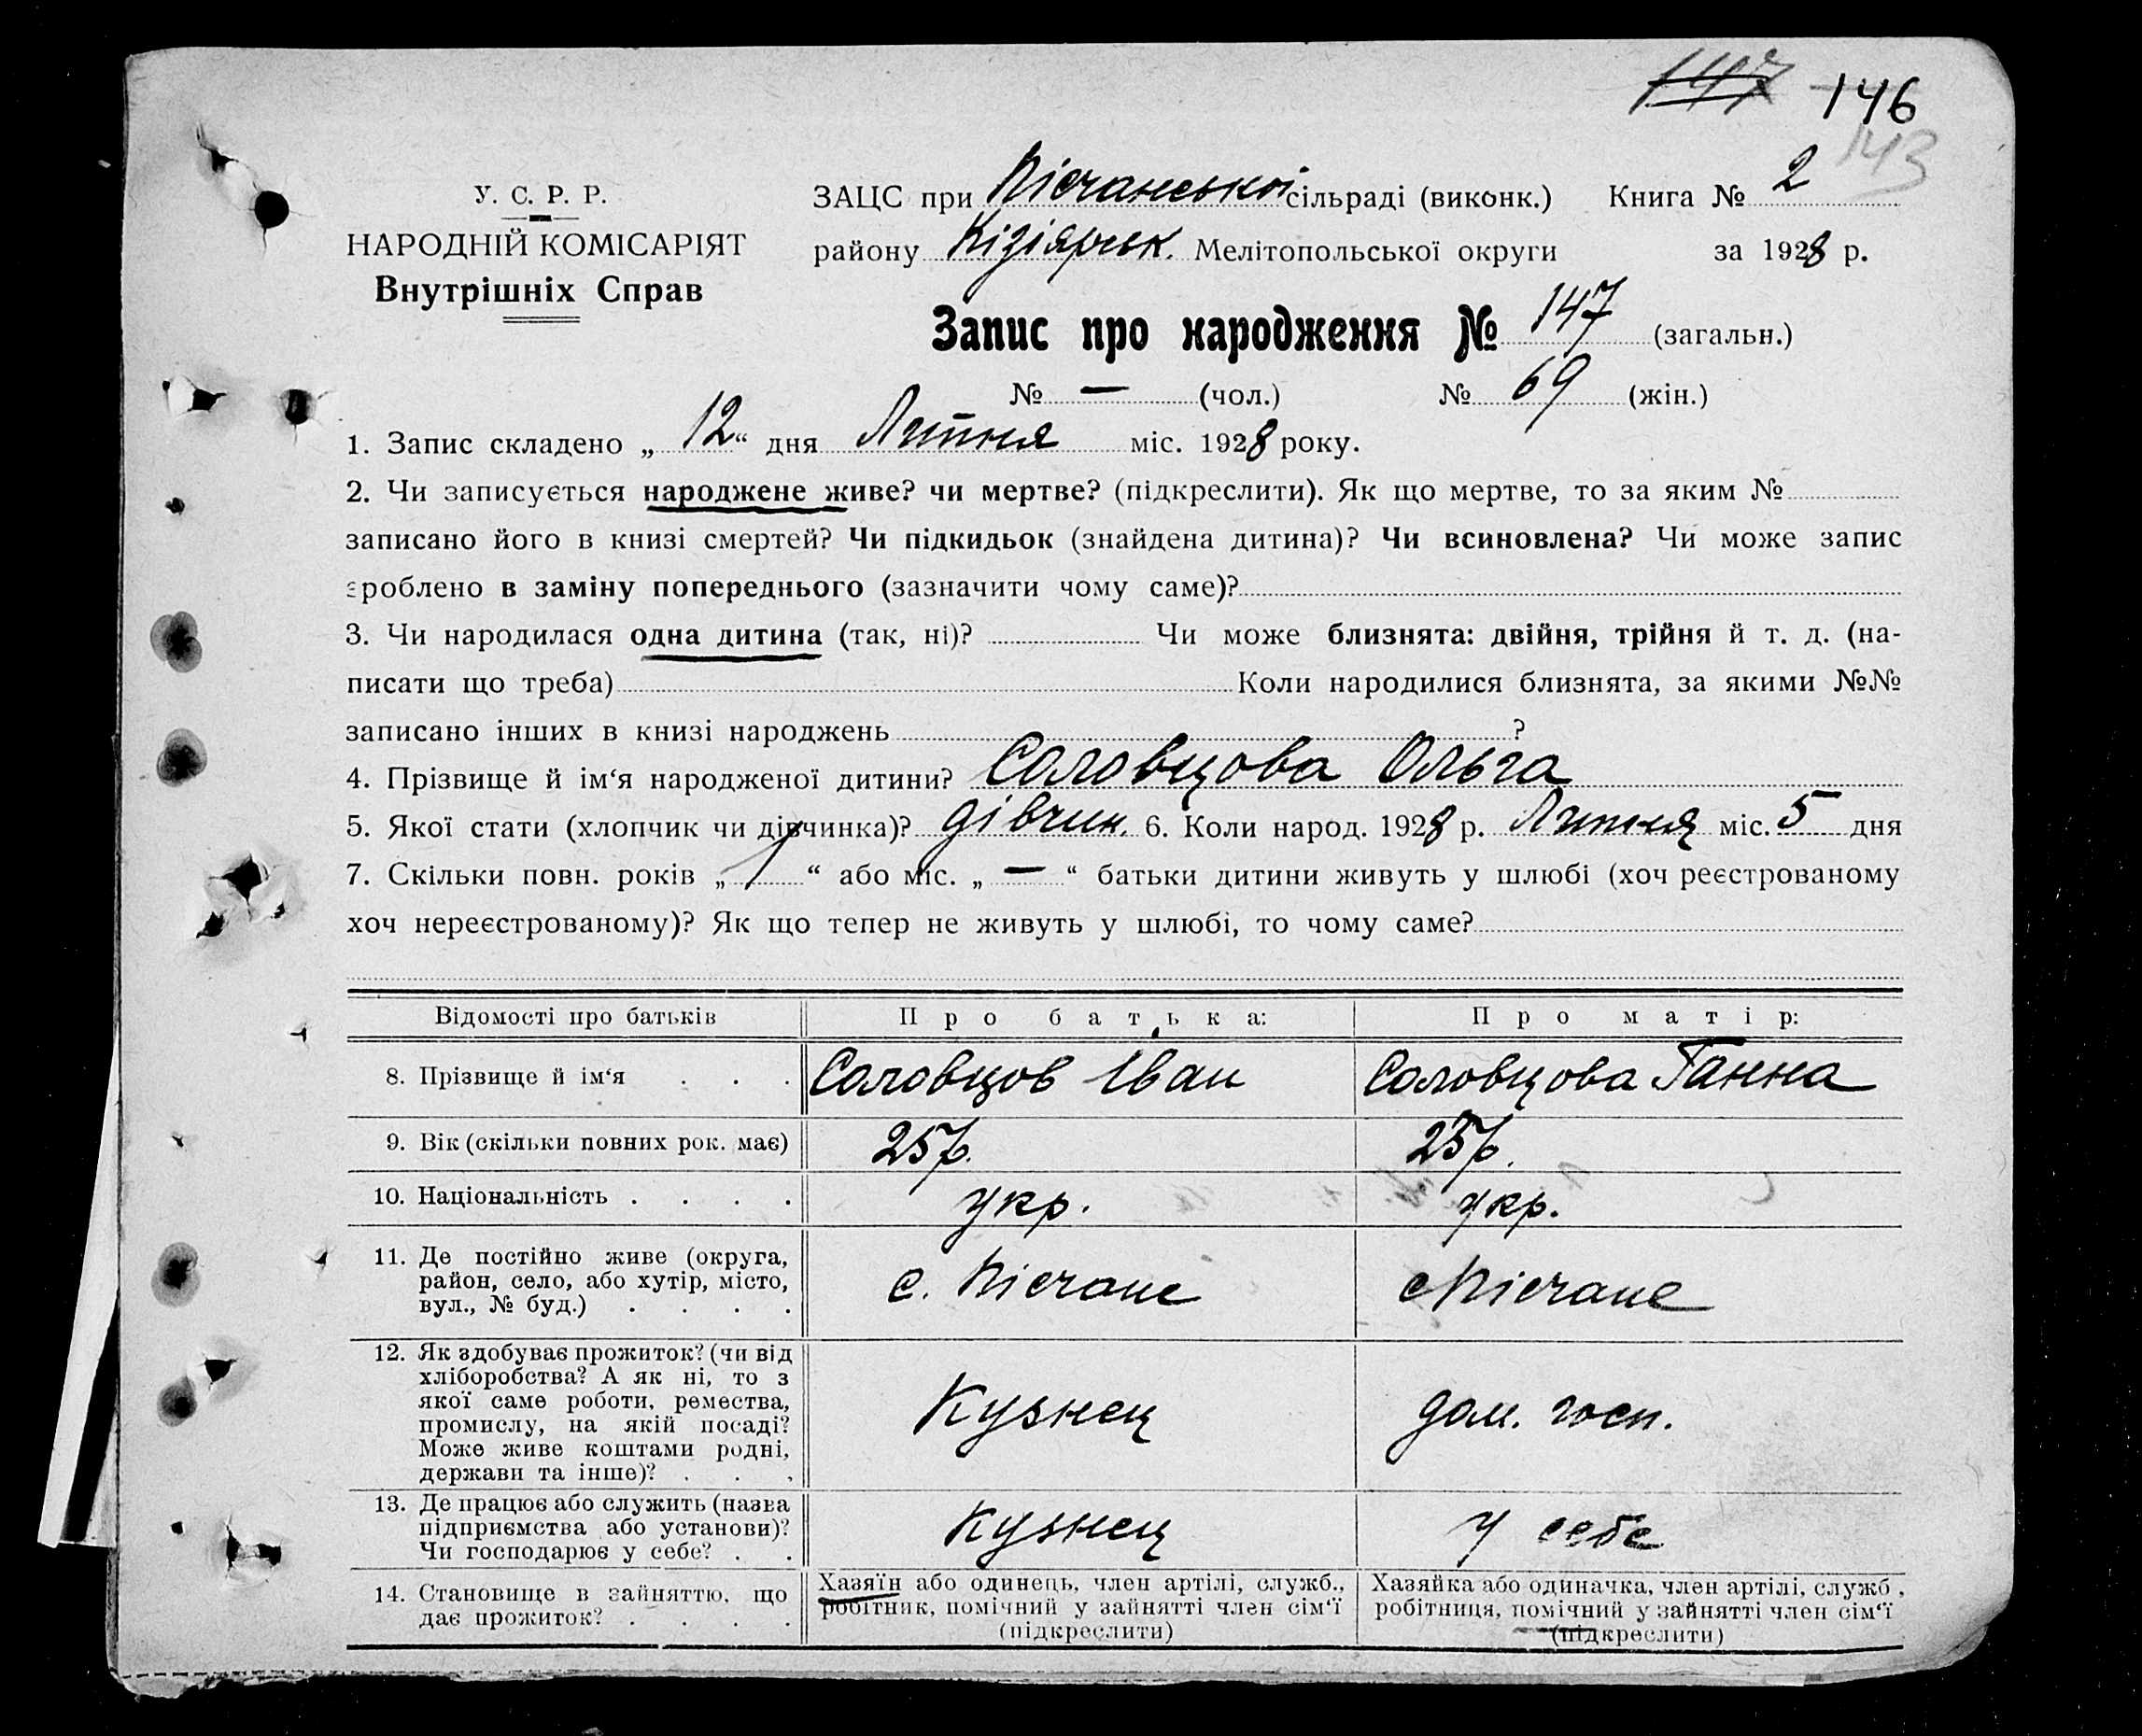 147 146
143
У. С. Р. Р.
НАРОДНІЙ КОМІСАРІЯТ
Внутрішніх Справ
ЗАЦС при Пісчанської сільраді (виконк.) Книга № 2
району Кізіярськ. Мелітопольської округи за 1928 р.
Запис про народження № 147 (загальн.)
№ — (чол.) № 69 (жін.)
1. Запис складено „ 12 “ дня Липня міс. 1928 року.
2. Чи записується народжене живе? чи мертве? (підкреслити). Як що мертве, то за яким №
записано його в книзі смертей? Чи підкидьок (знайдена дитина)? Чи всиновлена? Чи може запис
зроблено в заміну попереднього (зазначити чому саме)?
3. Чи народилася одна дитина (так, ні)? Чи може близнята: двійня, трійня й т. д. (на-
писати що треба) Коли народилися близнята, за якими №№
записано інших в книзі народжень ?
4. Прізвище й ім‘я народженої дитини? Соловцова Ольга
5. Якої стати (хлопчик чи дівчинка)? дівчин. 6. Коли народ. 1928 р. Липня міс. 5 дня
7. Скільки повн. років „ 1 “ або міс. „ — “ батьки дитини живуть у шлюбі (хоч реєстрованому
хоч нереєстрованому)? Як що тепер не живуть у шлюбі, то чому саме?
Відомості про батьків Про батька: Про матір:
8. Прізвище й ім‘я . . . Соловцов Іван Соловцова Ганна
9. Вік (скільки повних рок. має) 25 р. 25 р.
10. Національність . . . . укр. укр.
11. Де постійно живе (округа,
район, село, або хутір, місто,
вул., № буд.) . . . . с. Пісчане с Пісчане
12. Як здобуває прожиток? (чи від
хліборобства? А як ні, то з
якої саме роботи, ремества,
промислу, на якій посаді?
Може живе коштами родні,
держави та інше)? . . . Кузнец дом. госп.
13. Де працює або служить (назва
підприємства або установи)?
Чи господарює у себе? . . Кузнец у себе
14. Становище в зайняттю, що
дає прожиток? . . . .
Хазяїн або одинець, член артілі, служб.,
робітник, помічний у зайнятті член сім‘ї
(підкреслити)
Хазяйка або одиначка, член артілі, служб.,
робітниця, помічний у зайнятті член сім‘ї
(підкреслити)